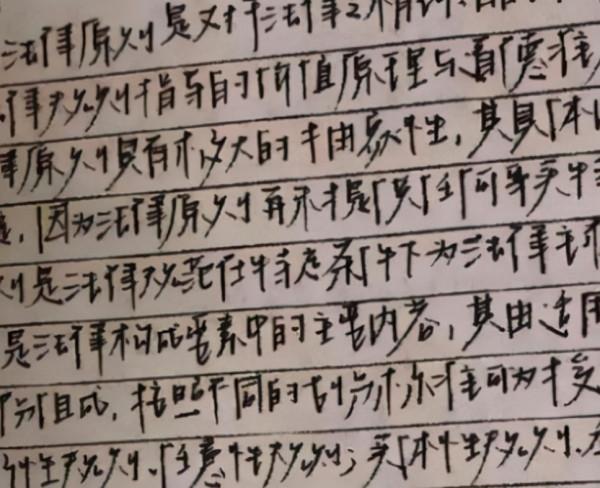 法律原则是对于法律之
律规则指导的价值原理与道德准
律原则具有极大的抽象性，其具体
因为法律原则再不提供任何事实
则是法律规范在特定条件下为法律主
是法律构成要素中的主要内容，其由适用
部分组成，按照不同的划分标准可为授
性规则、任意性规则；